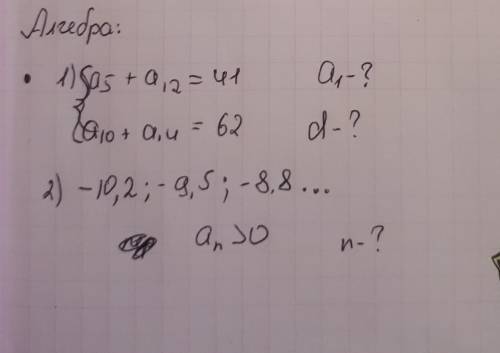 Алгебра:
1) { a5 + a12 = 41 a1 - ?
a10 + a14 = 62 d - ?
2) -10,2 ; -9,5 ; -8,8 ...
an > 0 n - ?